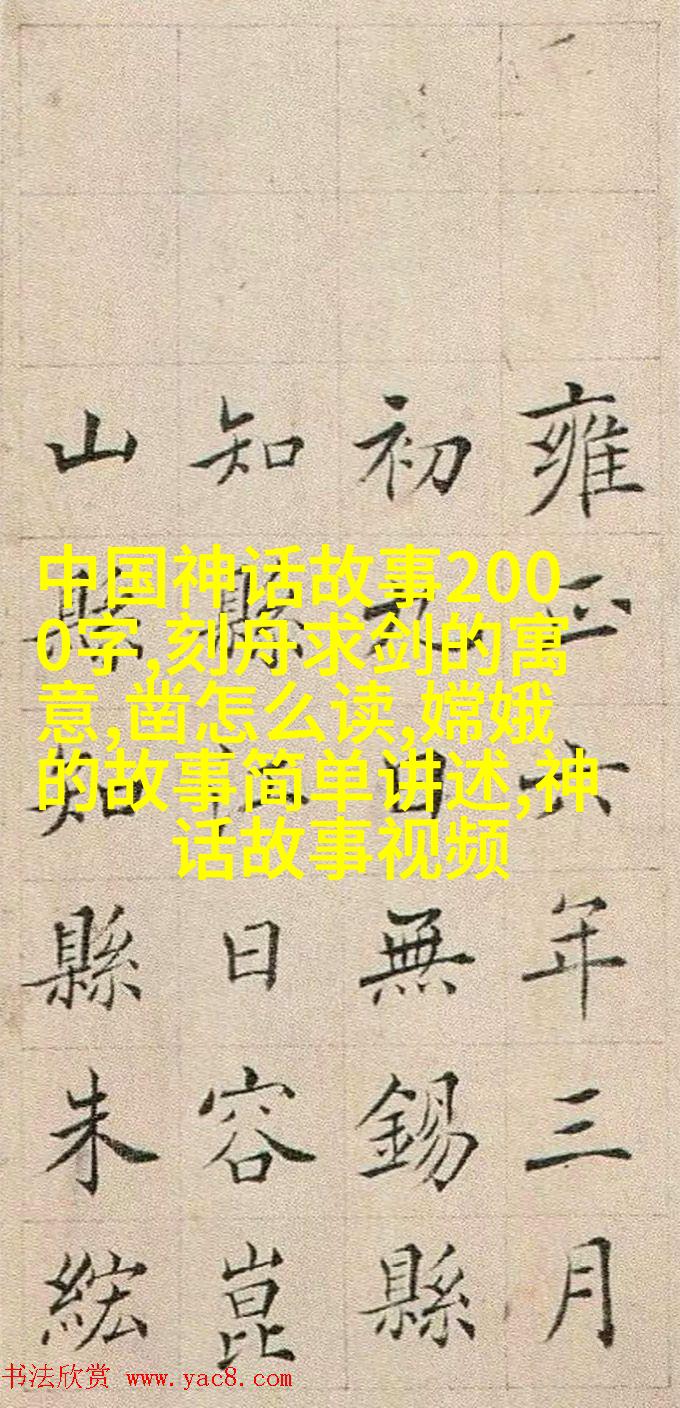 雍正六年三月
初九日無錫縣
知縣江日容崑
山縣知縣朱紘
中国神话故事200
0字,刻舟求剑的寓
意,凿怎么读,嫦娥
的故事简单讲述,神
话故事视频
书法欣赏 www.yac8.com